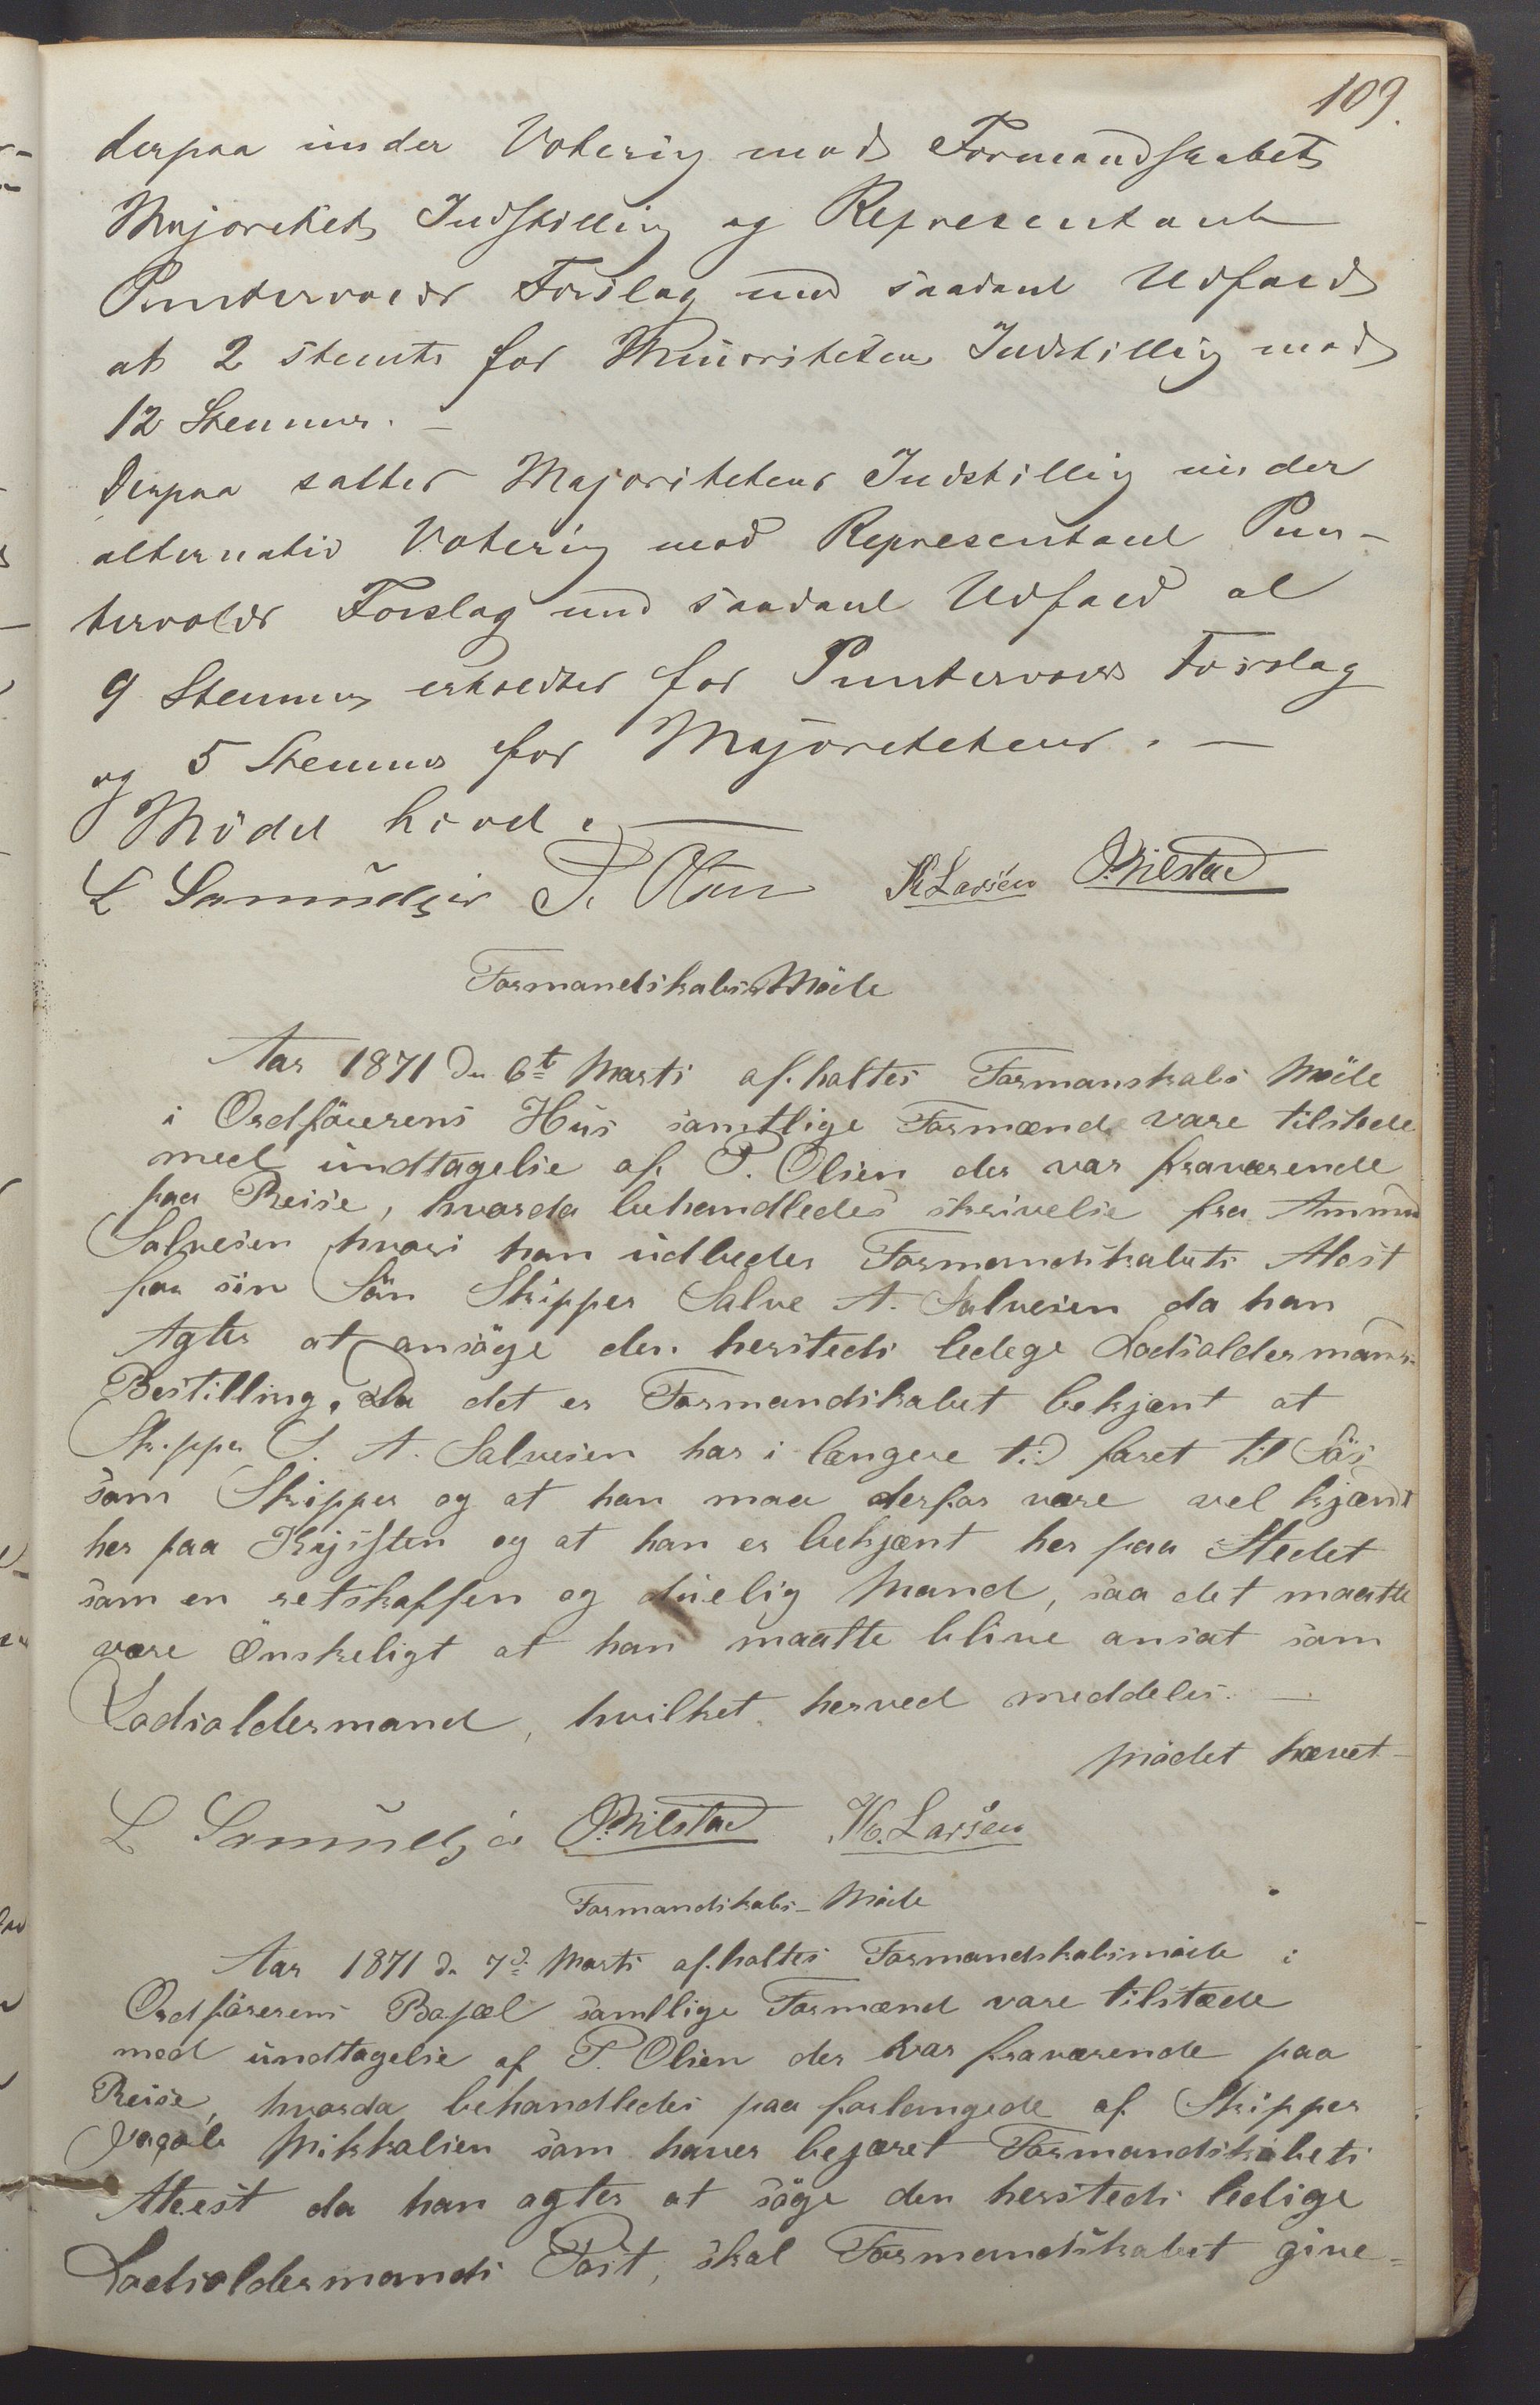 109.
derpaa under Votering mod Formandskabets
Majoritets Indstilling og Representant
Puntervolds Forslag med saadant Udfald
at 2 stemte for Minoritetens Indstilling mod
12 Stemmer. –
Derpaa sattes Majoritetens Indstilling under
alternativ Votering mod Representant Pun-
tervolds Forslag med saadant Udfald at
9 Stemmer erholdtes for Puntervolds Forslag
og 5 Stemmer for Majoritetens. –
Mödet hævet. —
L Samuelsen P. Olsen K Larsen O. Milstad
Formandskabs Möde
Aar 1871 den 6t Marti af.holtes Formanskabs Möde
i Ordförerens Hus samtlige Formænd vare tilstede
med undtagelse af P. Olsen der var fraværende
paa Reise, hvorda behandledes skrivelse fra Ammund
Salvesen hvori han udbeder Formandskabets Atest
for sin Sön Skipper Salve A. Salvesen da han
Agter at ansöge den hersteds ledege Lodsoldermans
Bestilling, da det er Formandskabet bekjent at
Skipper S. A. Salvesen har i længere tid faret til Söes
som Skipper og at han maa derfor være vel kjændt
her paa Kysten og at han er bekjent her paa Stedet
som en retskaffen og duelig Mand, saa det maatte
være Önskeligt at han maatte blive ansat som
Lodsoldermand, hvilket herved meddeles. —
Mödet hævet –
L Samuelsen O. Milstad K. Larsen
Formandskabs – Möde
Aar 1871 d. 7d Marti af.holtes Formandskabsmöde i
Ordförerens Bopæl samtlige Formænd vare tilstæde
med undtagelse af P. Olsen der var fraværende paa
Reise, hvorda behandledes paa forlangede af Skipper
Jacob Mikkalsen som haver begjæret Formandskabets
Atest da han agter at söge den hersteds ledige
Lodsoldermands Post, skal Formandskabet give=